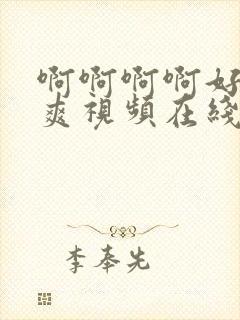 啊啊啊啊好
爽視頻在綫
李奉先